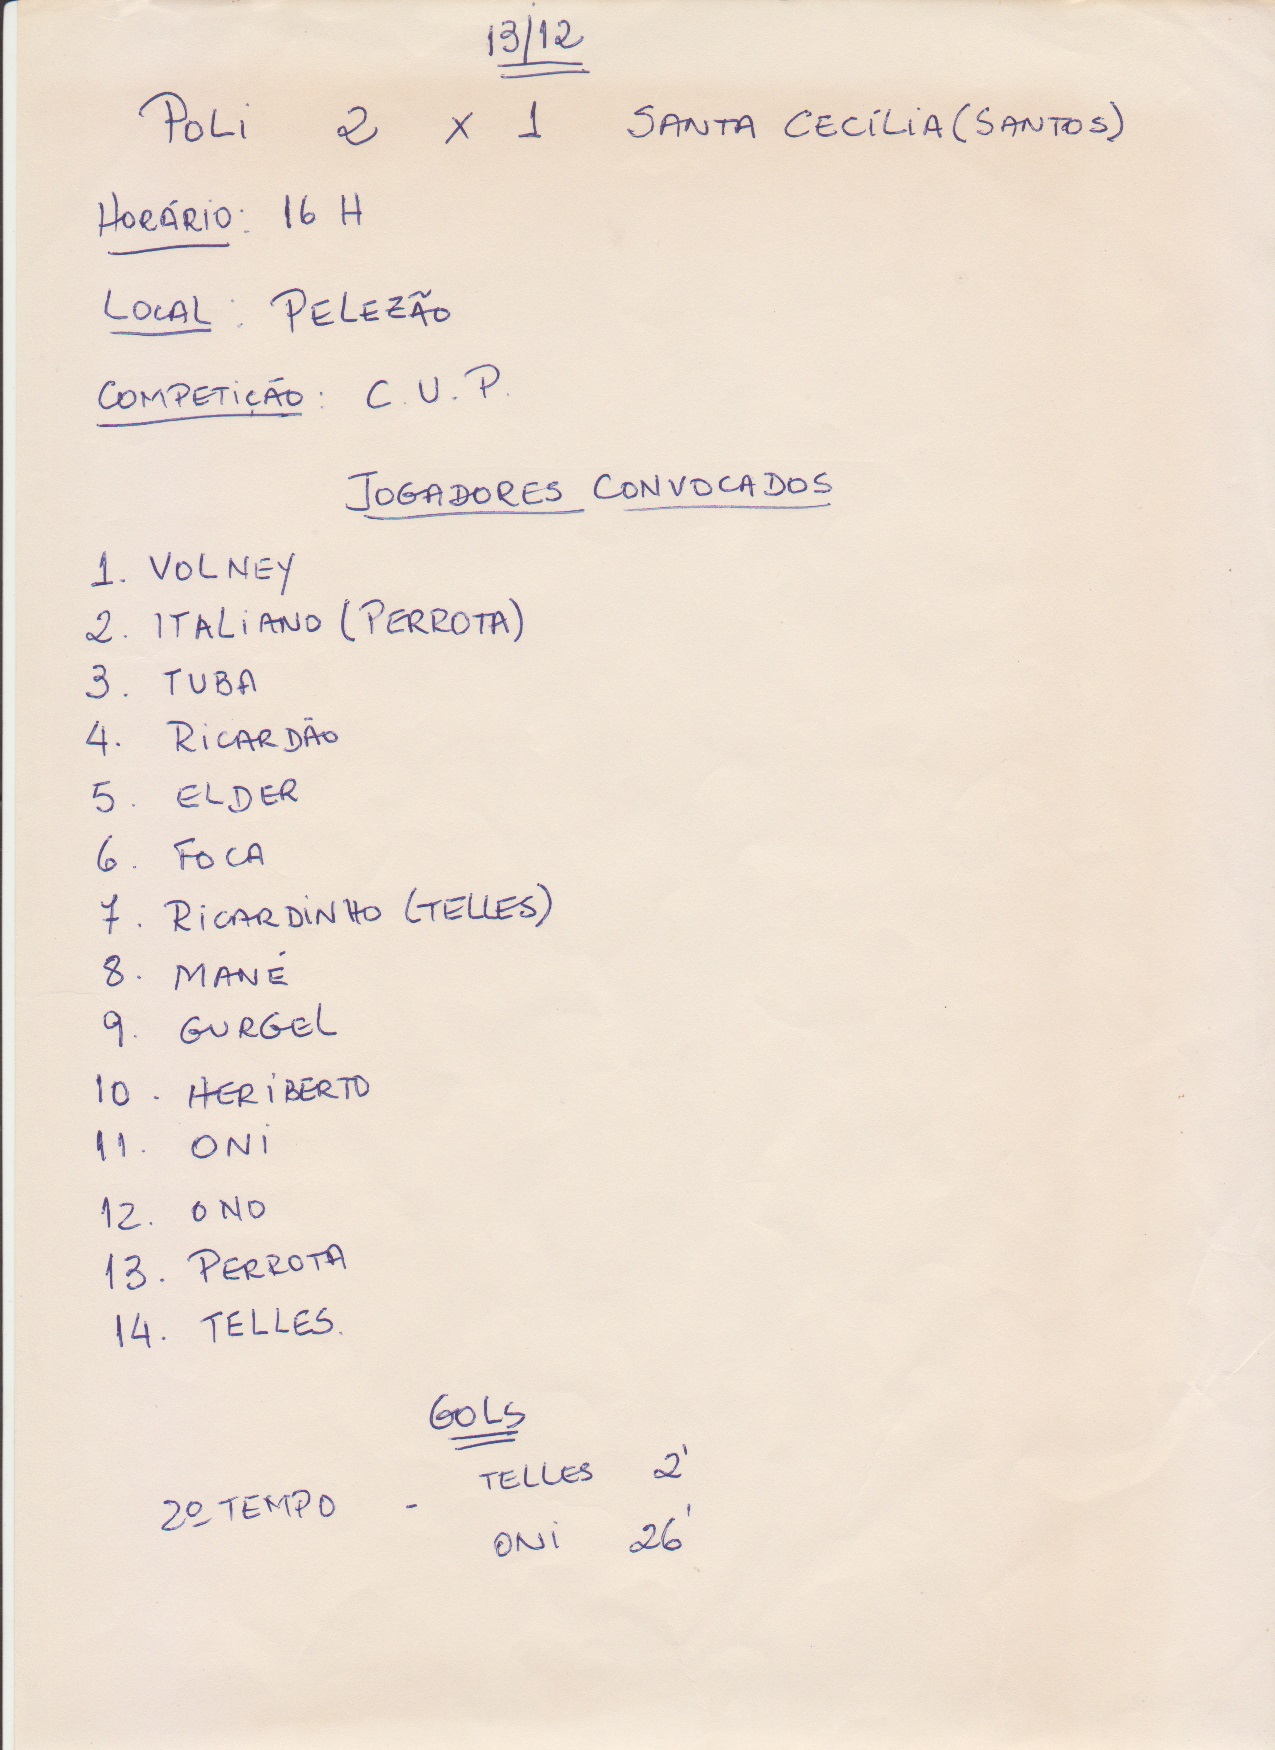 13/12
POLI 2 X 1 SANTA CECÍLIA (SANTOS)
HORÁRIO: 16 H
LOCAL: PELEZÃO
COMPETIÇÃO: C.U.P.
JOGADORES CONVOCADOS
1. VOLNEY
2. ITALIANO (PERROTA)
3. TUBA
4. RICARDÃO
5. ELDER
6. FOCA
7. RICARDINHO (TELLES)
8. MANÉ
9. GURGEL
10. HERIBERTO
11. ONI
12. ONO
13. PERROTA
14. TELLES.
GOLS
TELLES 2'
2º TEMPO -
ONI 26'